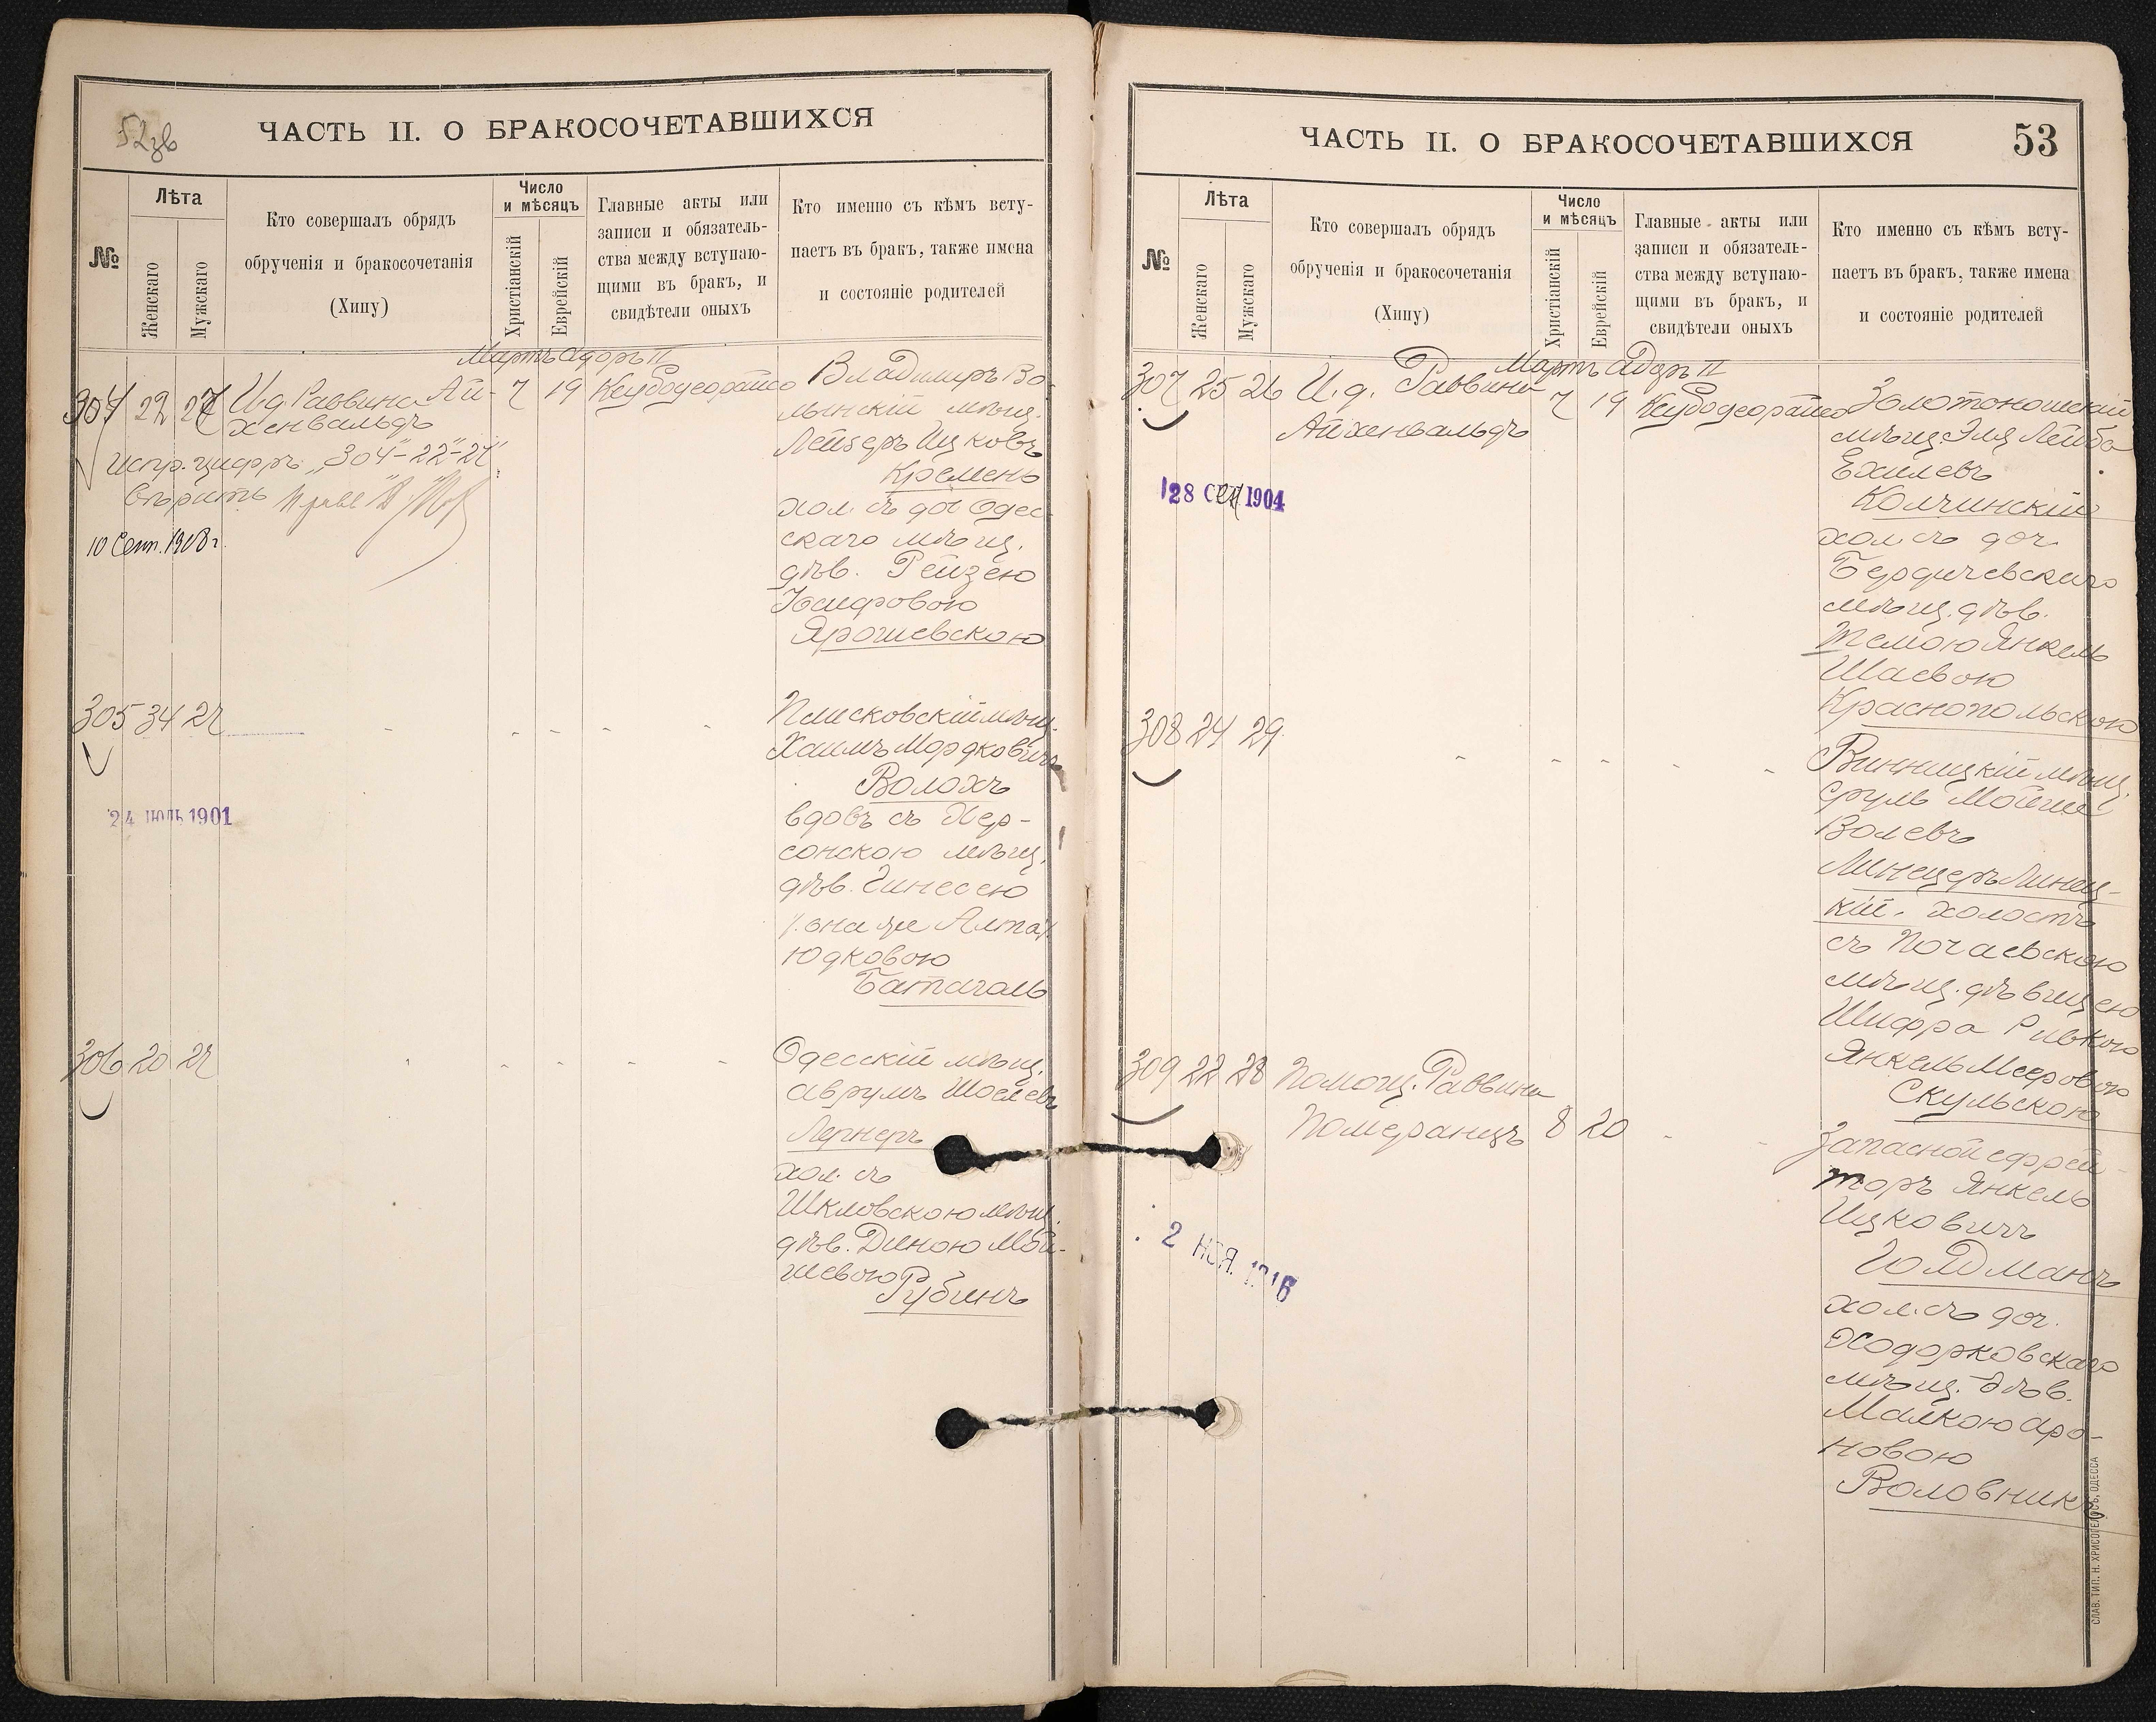 52зв
ЧАСТЬ II. О БРАКОСОЧЕТАВШИХСЯ
№
Лѣта
Женскаго
Мужскаго
Кто совершалъ обрядъ
обрученія и бракосочетанія
(Хипу)
Число
и мѣсяцъ
Христіанскій
Еврейскій
Главные акты или
записи и обязатель-
ства между вступаю-
щими въ бракъ, и
свидѣтели оныхъ
Кто именно съ кѣмъ всту-
паетъ въ бракъ, также имена
и состояніе родителей
Мартъ Адаръ II
304 22 27 И.д. Раввина Ай-
хенвальдъ
7 19
испр. цифръ „304"-22"-27"
вѣрить
10 Сент. 1908 г.
Владимиръ Во-
лынскій мѣщ.
Лейзеръ Ицковъ
Кремень
хол. съ доч Одес-
скаго мѣщ.
дѣв. Рейзею
Ярошевскою
305 34 27 - - - - -
24 ІЮЛЬ 1901
Плисковскій мѣщ.
Хаимъ Мордковичъ
Волохъ
вдовъ съ Хер-
сонскою мѣщ.
дѣв. Гинесею
/.она же Алта/.
Юдковою
Батагаль
306 20 27 - - - - -
Одесскій мѣщ.
Аврумъ Шоелевъ
Лернеръ
хол. съ
Шкловскою мѣщ.
дѣв. Диною Мой-
шевою
Рубинъ
ЧАСТЬ II. О БРАКОСОЧЕТАВШИХСЯ
53
№
Лѣта
Женскаго
Мужскаго
Кто совершалъ обрядъ
обрученія и бракосочетанія
(Хипу)
Число
и мѣсяцъ
Христіанскій
Еврейскій
Главные акты или
записи и обязатель-
ства между вступаю-
щими въ бракъ, и
свидѣтели оныхъ
Кто именно съ кѣмъ всту-
паетъ въ бракъ, также имена
и состояніе родителей
Мартъ Адаръ II
307 25 26 И.д. Раввина
Айхенвальдъ
7 19
28 СЕН 1904
Золотоношскій
мѣщ. Эля Лейба
Ехилевъ
Колчинскій
хол. съ доч.
Бердичевскаго
мѣщ. дѣв.
Темою Янкель
Шаевою
Краснопольскою
308 24 29 - - - - -
Винницкій мѣщ.
Сруль Мойше
Волевъ
Линецеръ Линец-
кій. холостъ
съ Почаевскою
мѣщ. дѣвицею
Шифра Ривкою
Янкель Мееровою
Скульскою
309 22 28 Помощ. Раввина
Померанцъ 8 20 - -
2 НОЯ. 1916
Запасной ефрей-
торъ Янкель
Ицковичъ
Гольдманъ
хол. съ доч.
Ходорковскаго
мѣщ. дѣв.
Малкою Аро-
новою
Воловникъ
СЛАВ. ТИП. Н. ХРИСОГЕЛОСЪ, ОДЕССА